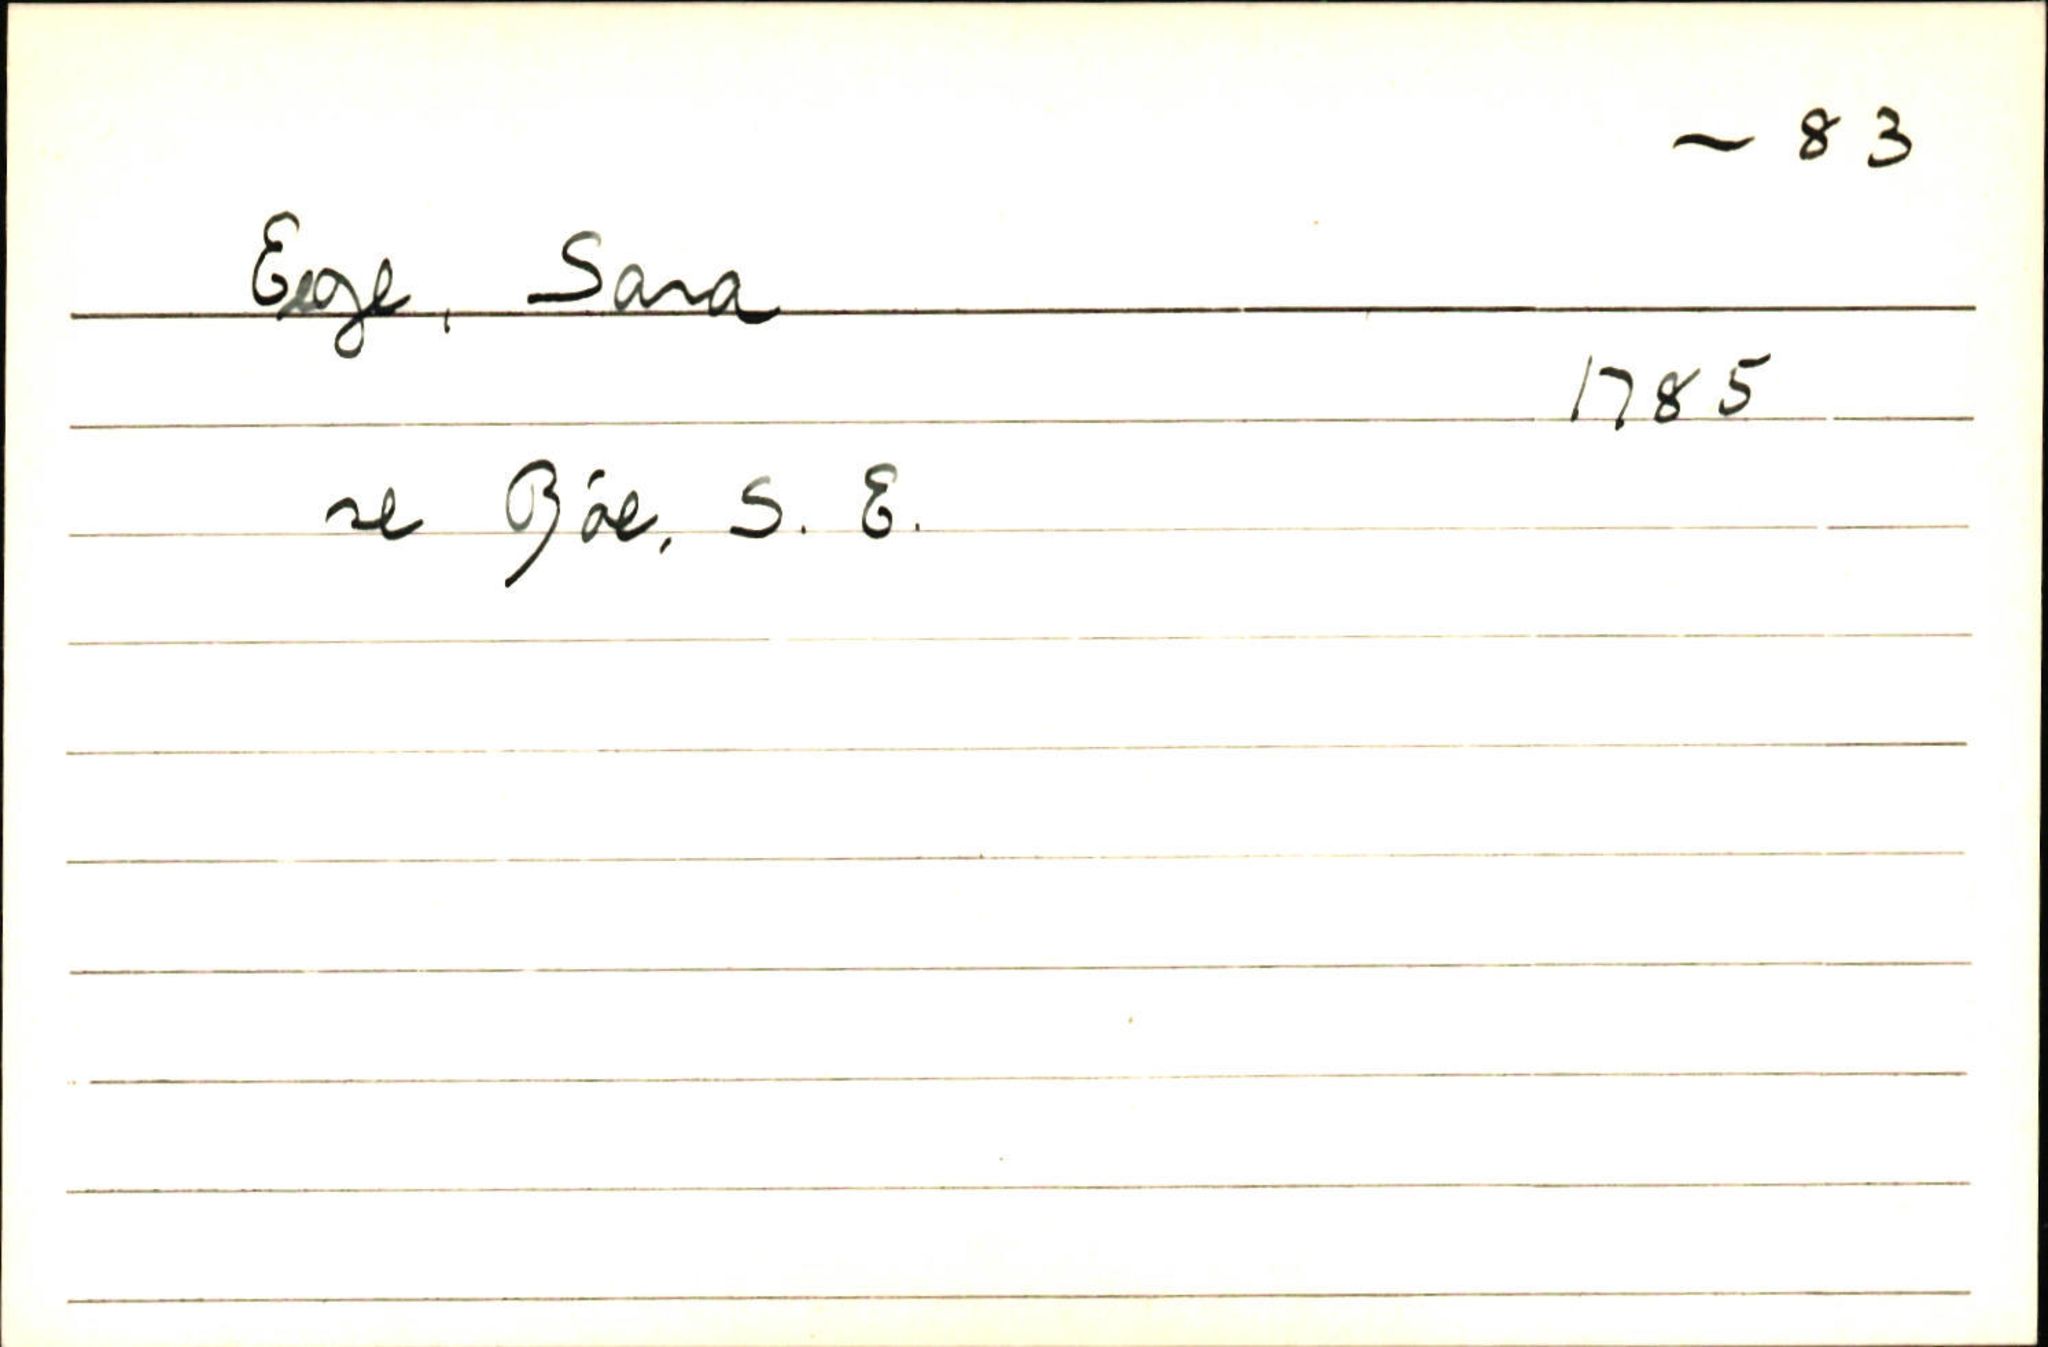 ~ 83
Eege, Sara
1785
se Bóe, S. E.